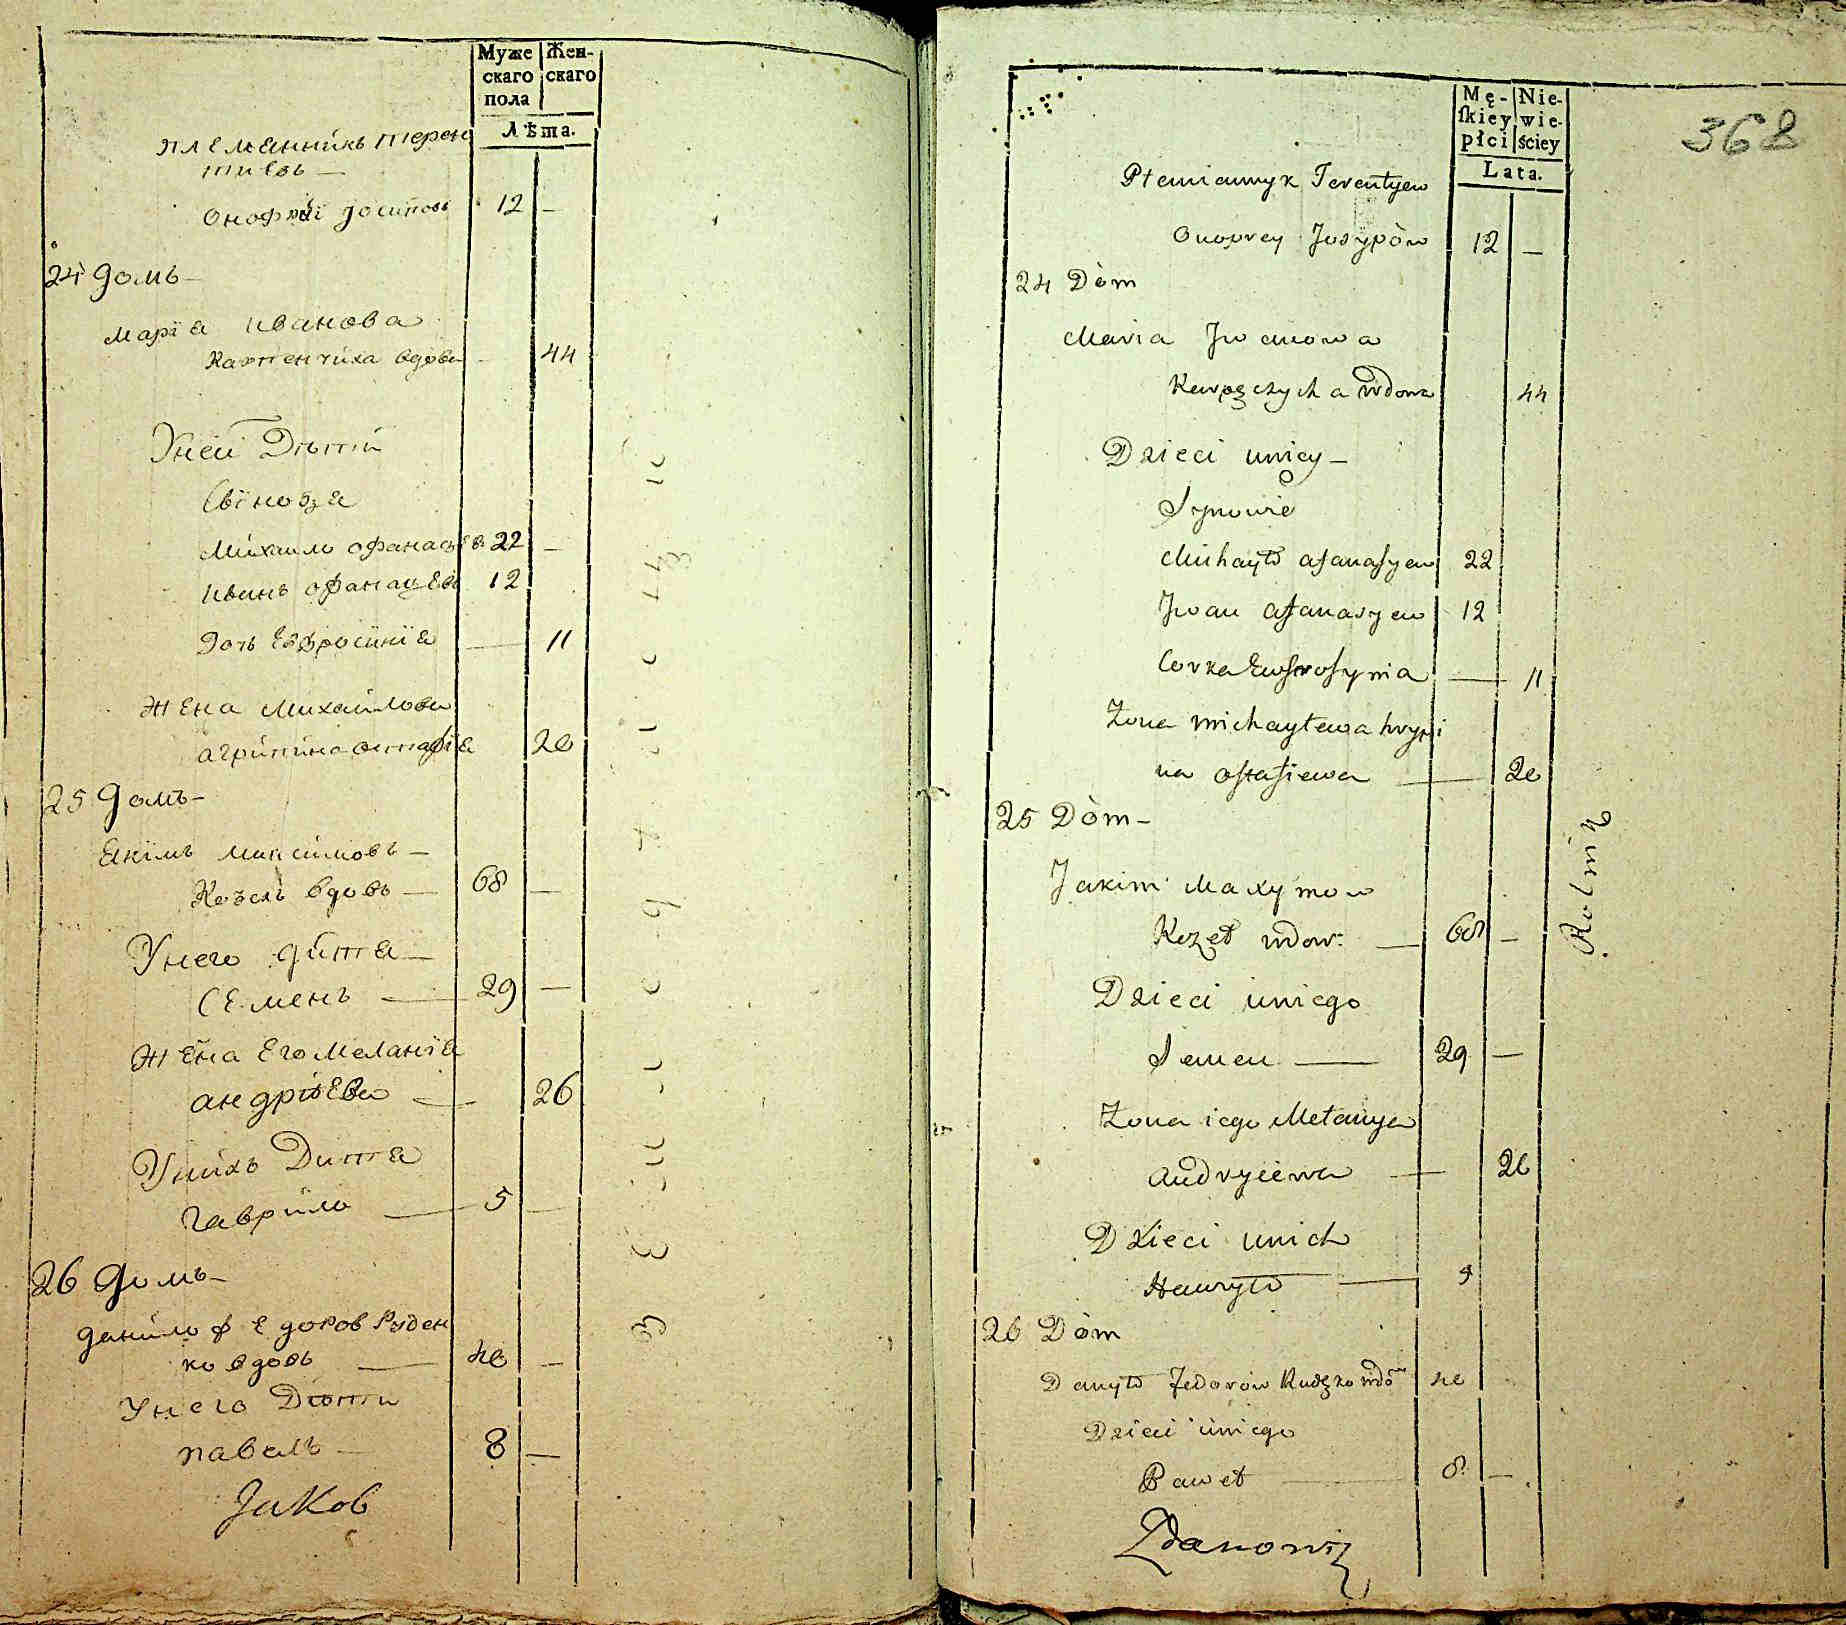 Муже Жен-
скаго скаго
пола
Лѣта.
племанникъ терен
тиевъ —
Онофрій Јосиповъ 12 —
24 домъ —
Маріа иванова
Карпенчиха вдова - 44
Унеи Дѣти
Сыновѧ
Михаило офанасіев 22 —
иванъ офанасиевъ 12
Дочь Евфросиніа — 11
Жена Михаилова
агрипина остафіева 20
25 домъ —
Екимъ максимовъ —
Козелъ вдовъ — 68 —
Унего дита —
Семенъ — 29 —
Жена Его Меланіа
андріева — 26
Унихъ Дита
Гаврило — 5 —
26 домъ —
данило Федоров Руден
ко вдовъ — 40 —
Унего Дѣти
павелъ — 8 —
Јаков
368
Mę- Nie-
ſkiey wie-
płci ściey
Lata.
Płemiannyk Terentyew
Onoprey Josypòw 12 —
24 Dòm
Maria Iwanowa
Karpęczycha wdowa 44
Dzieci uniey —
Synowie
Michayło afanaſyew 22
Iwan afanasyew 12
Corka Ewfroſynia — 11
Zona michayłowa hrypi
na oſtafiewa — 20
25 Dòm —
Jakim Maxymow
Kozeł wdow: — 68 —
Dzieci uniego
Semen — 29 —
Zona iego Mełanya
Andryiewa — 26
Dzieci unich
Hawryło — 5
26 Dòm
Danyło Fedorow Rudęko wdo 40
Dzieci uniego
Paweł — 8 —
Rolnik
Zdanowi